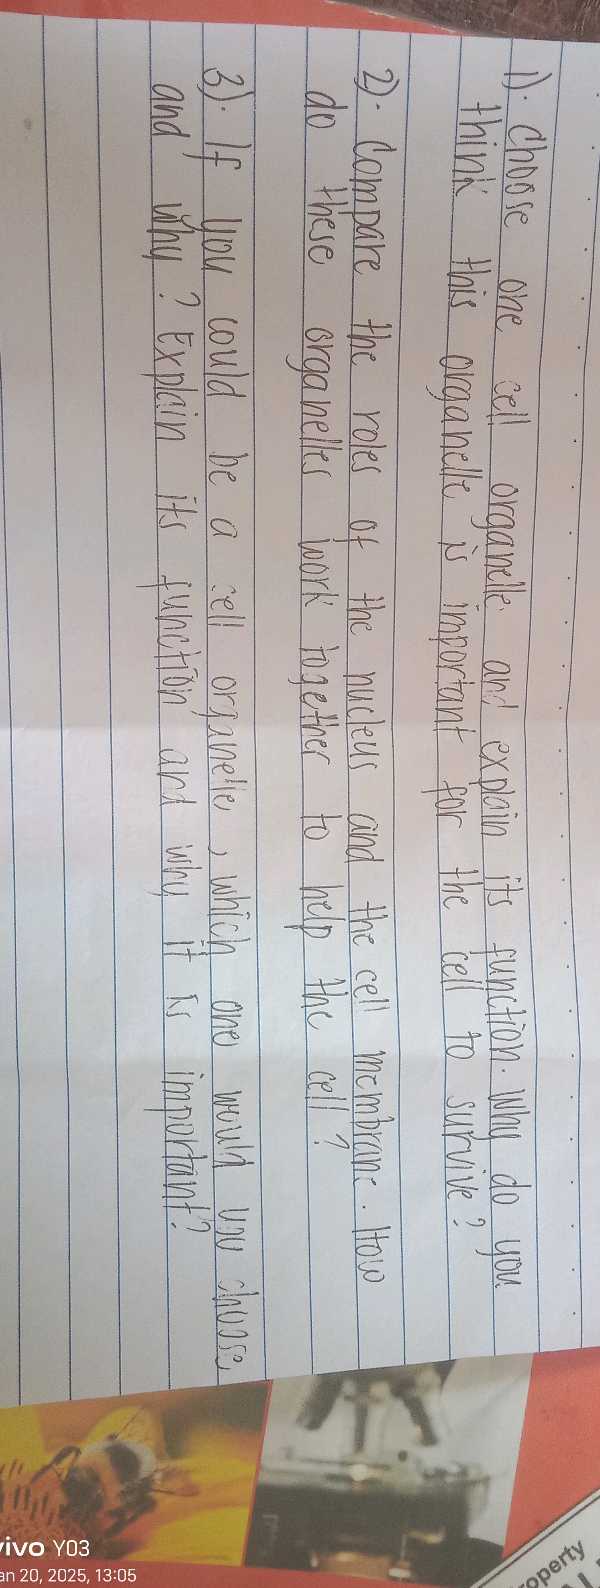 1). Choose one cell organelle and explain its function. Why do you
think this organelle is important for the cell to survive?
2). Compare the roles of the nucleus and the cell membrane. How
do these organelles work together to help the cell?
3). If you could be a cell organelle, which one would you choose
and why? Explain its function and why it is important?
operty
vivo Y03
an 20, 2025, 13:05